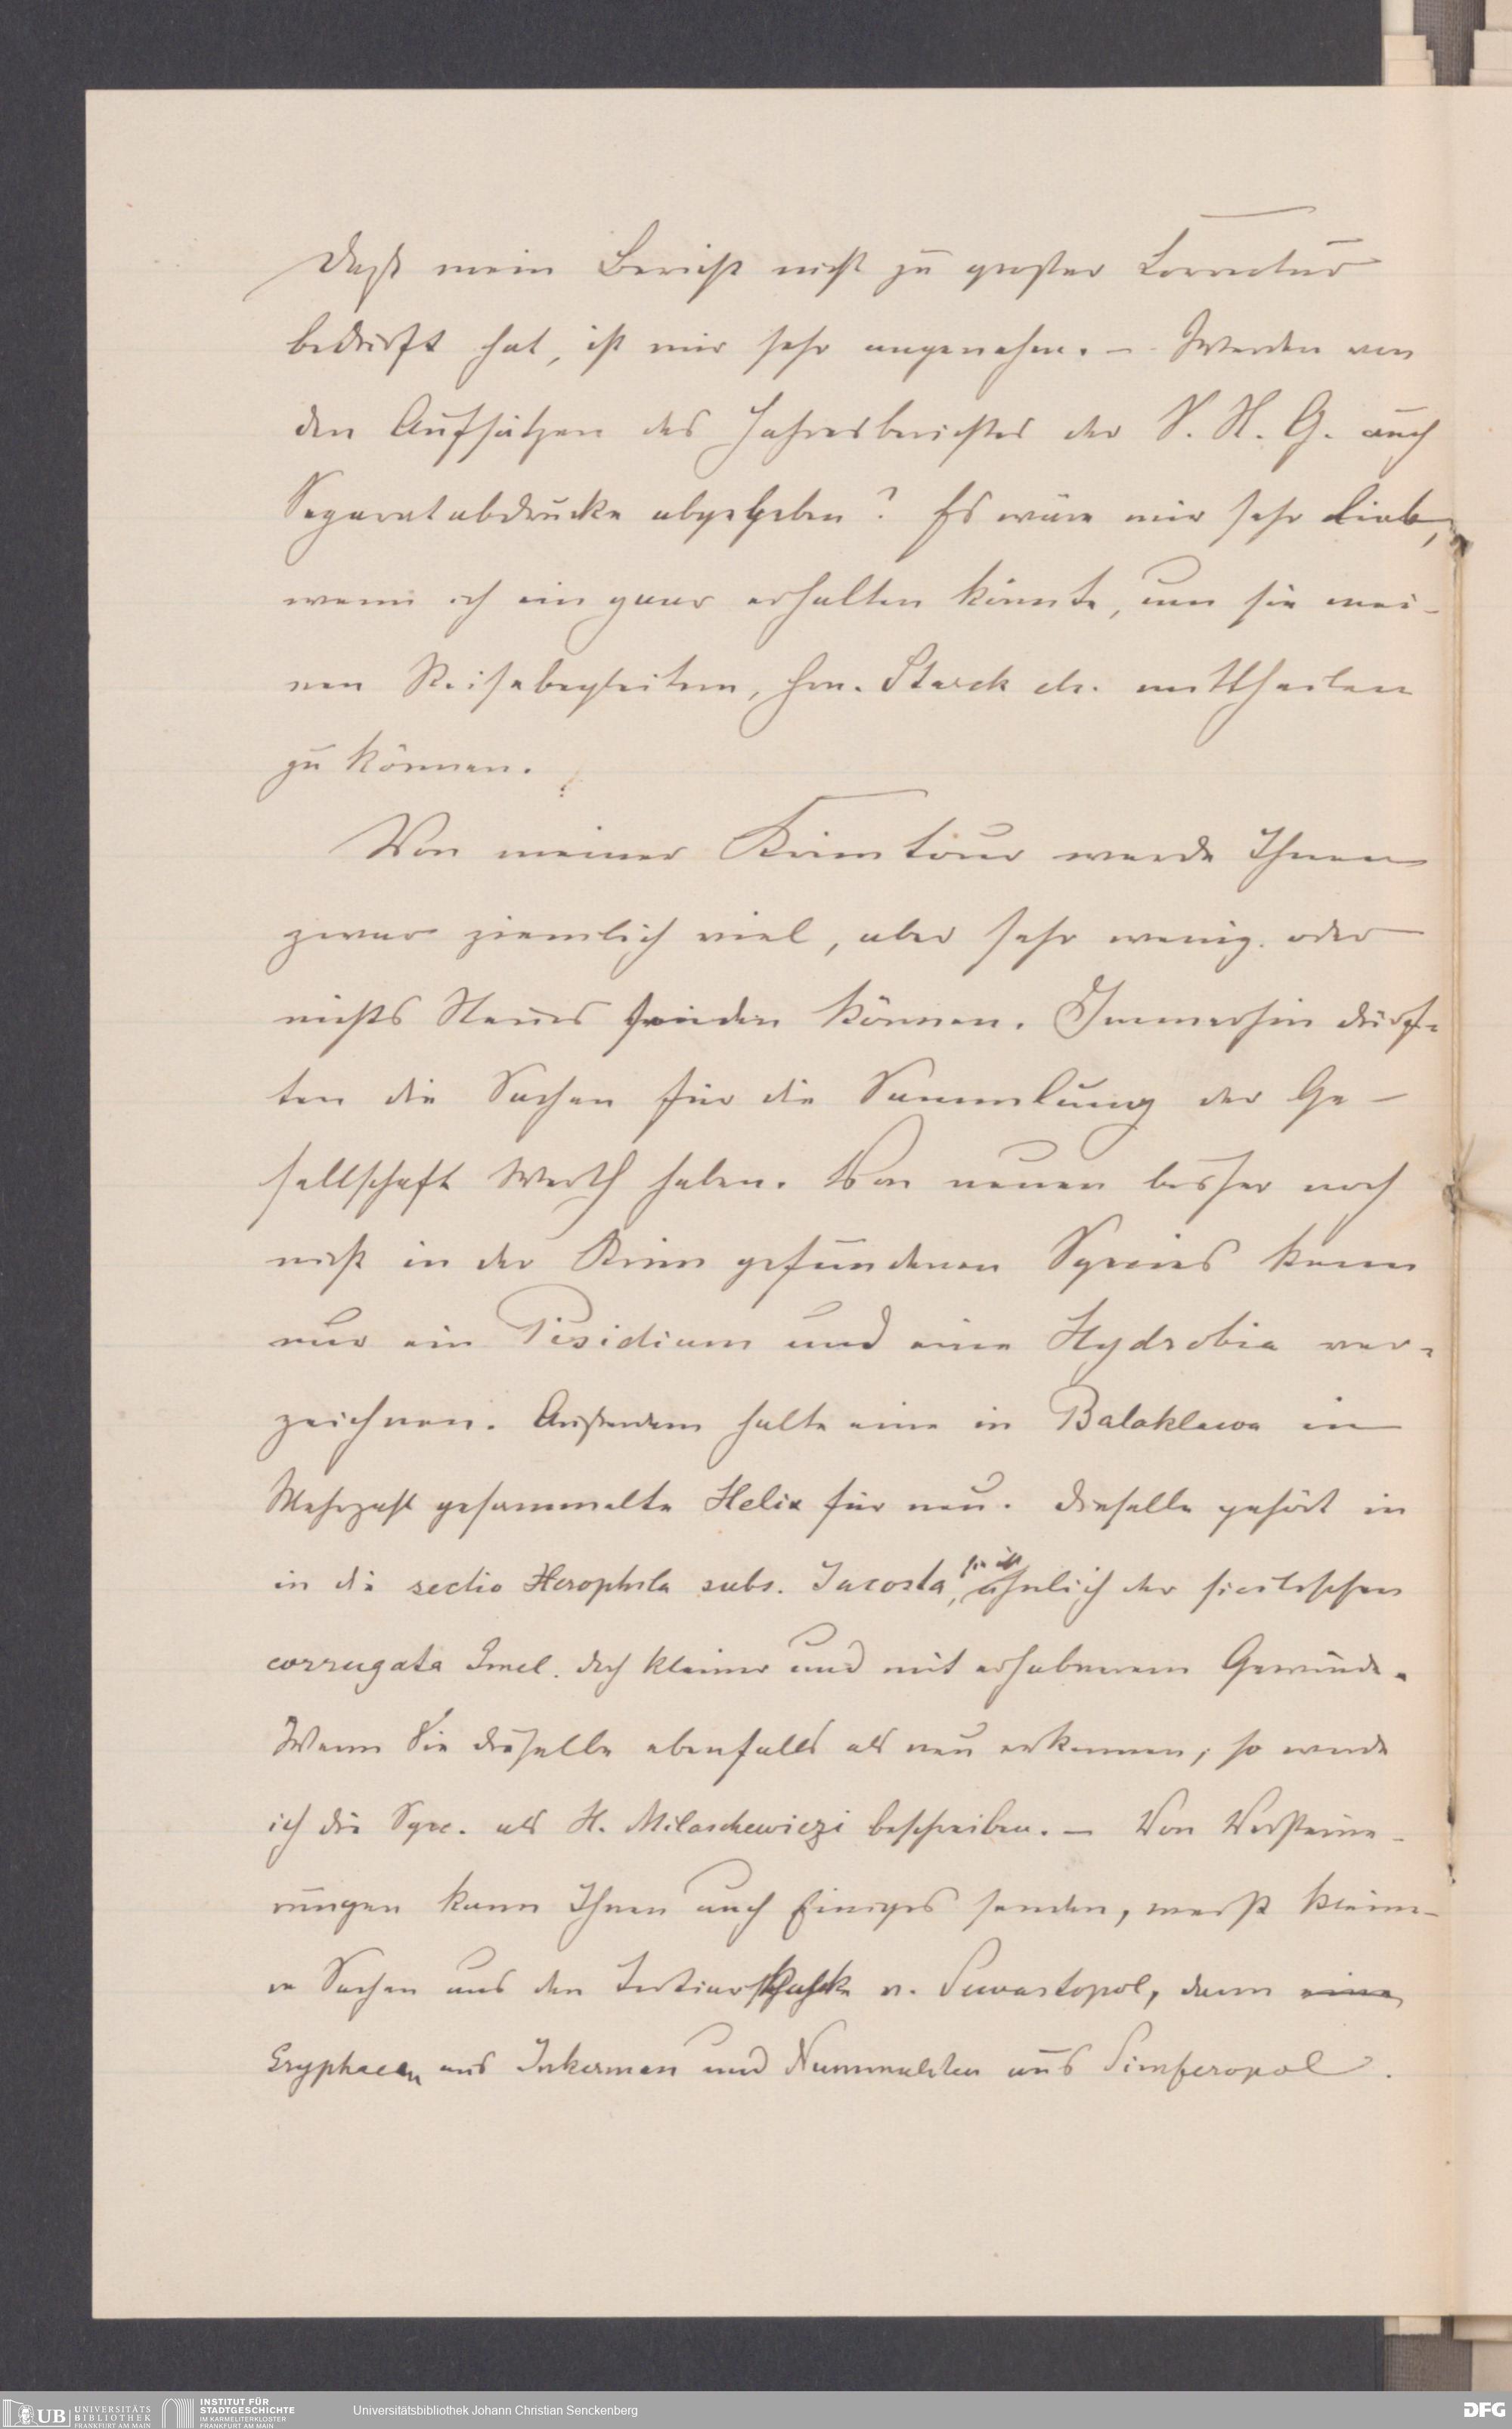 Daß mein Bericht nicht zu großer Correctur
bedurft hat, ist mir sehr angenehm. – Werden von
den Aufsätzen des Jahresberichtes der S. N. G. auch
Separatabdrücke abgegeben? Es wäre mir sehr lieb,
wenn ich ein paar erhalten könnte, um sie mei-
nen Reisebegleitern, Hrn. Starck etc. mittheilen
zu können.
Von meiner Krimtour werde Ihnen
zwar ziemlich viel, aber sehr wenig oder
nichts Neues senden können. Immerhin dürf-
ten die Sachen für die Sammlung der Ge-
sellschaft Werth haben. Von neuen bisher noch
nicht in der Krim gefundenen Species kann
nur ein Pisidium und eine Hydrobia ver-
zeichnen. Außerdem halte eine in Balaklawa in
Mehrzahl gesammelte Helix für neu. Dieselbe gehört in
in die sectio Xerophila subs. Jacosta, sie ist ähnlich der sicilischen
corrugata Gmel. doch kleiner und mit erhabenerem Gewinde.
Wenn Sie dieselbe ebenfalls als neu erkennen, so werde
ich die Spec. als H. Milaschewiczi beschreiben. – Von Versteine-
rungen kann Ihnen auch Einiges senden, meist kleine-
re Sachen aus dem v. Sewastopol, dann eine
Gryphaeen aus Inkerman und Nummuliten aus Simferopol.
UB UNIVERSITÄTS
BIBLIOTHEK
FRANKFURT AM MAIN
INSTITUT FÜR
STADTGESCHICHTE
IM KARMELITERKLOSTER
FRANKFURT AM MAIN
Universitätsbibliothek Johann Christian Senckenberg
DFG